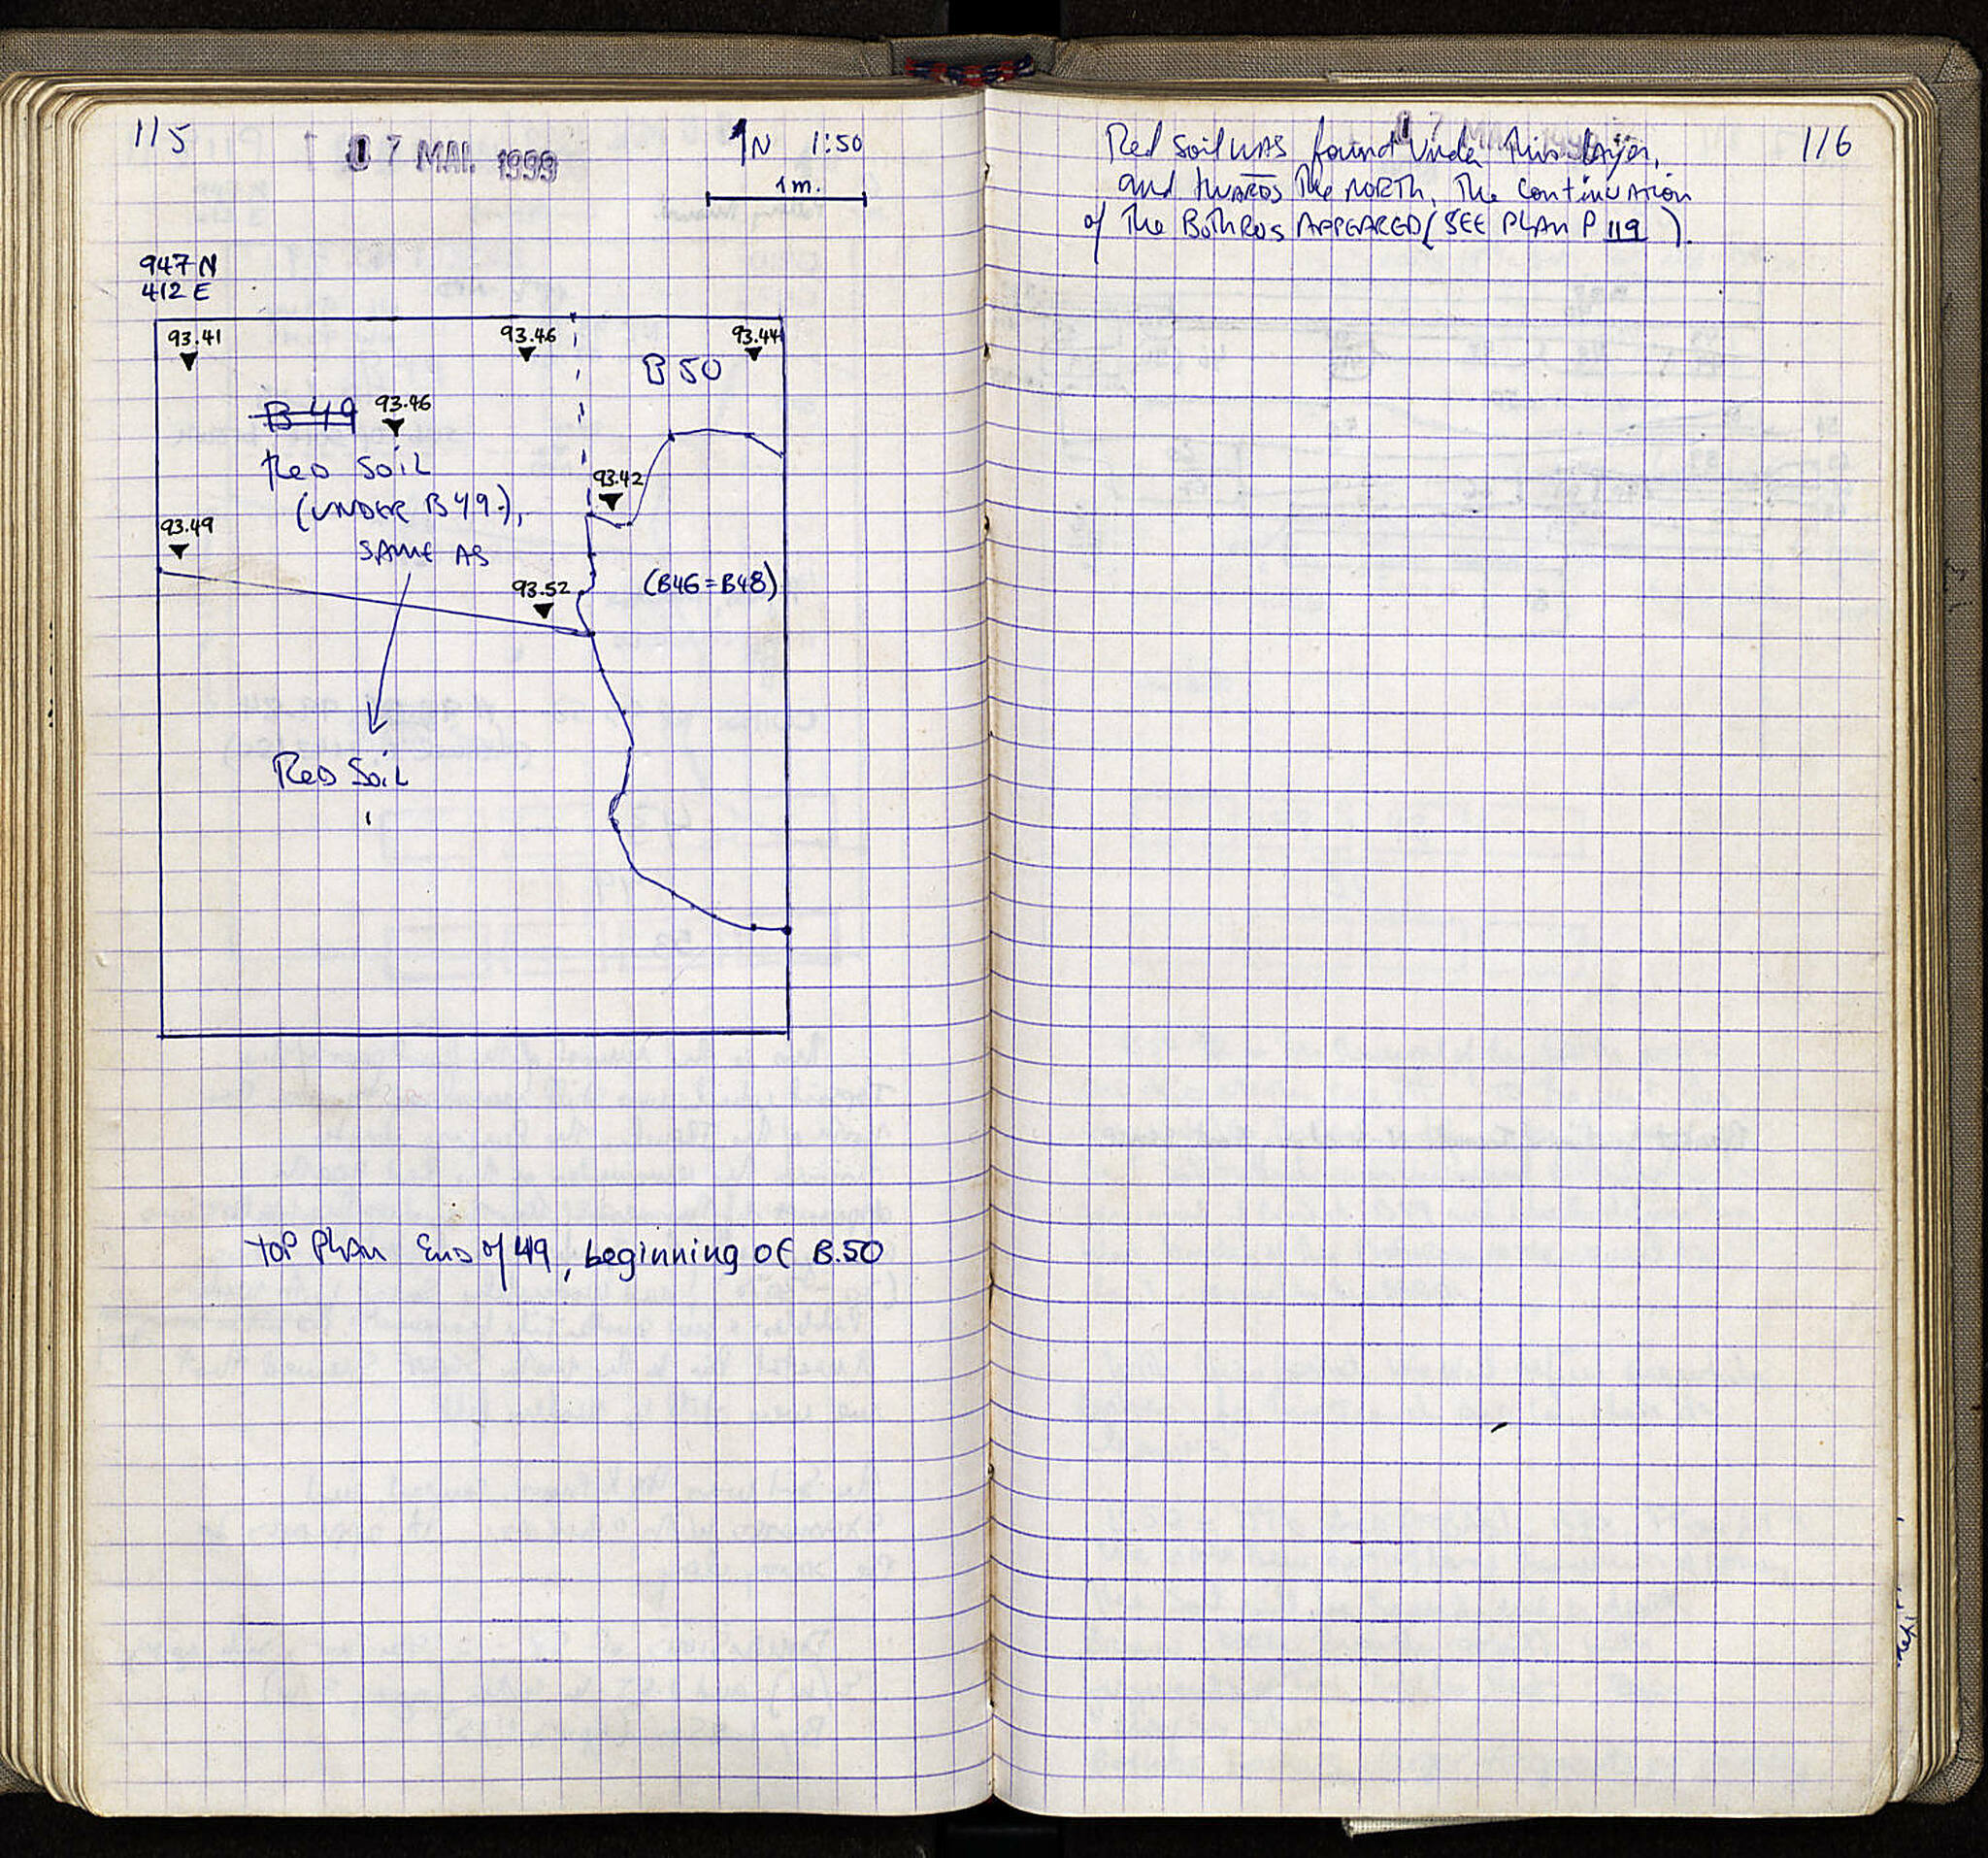 115
07 MAI 1999
N 1:50
1m.
947 N
412 E
93.41
93.46
93.44
B 50
B 49
93.46
Red Soil
(UNDER B49.),
SAME AS
93.42
93.49
93.52
(B46=B48)
Red Soil
TOP PLAN End of 49, beginning OF B.50
116
07 MAI 1999
Red Soil WAS found under this layer,
and towARDS The NORTH, The continuation
of The BothRos APPEARED (SEE PLAN P 119).